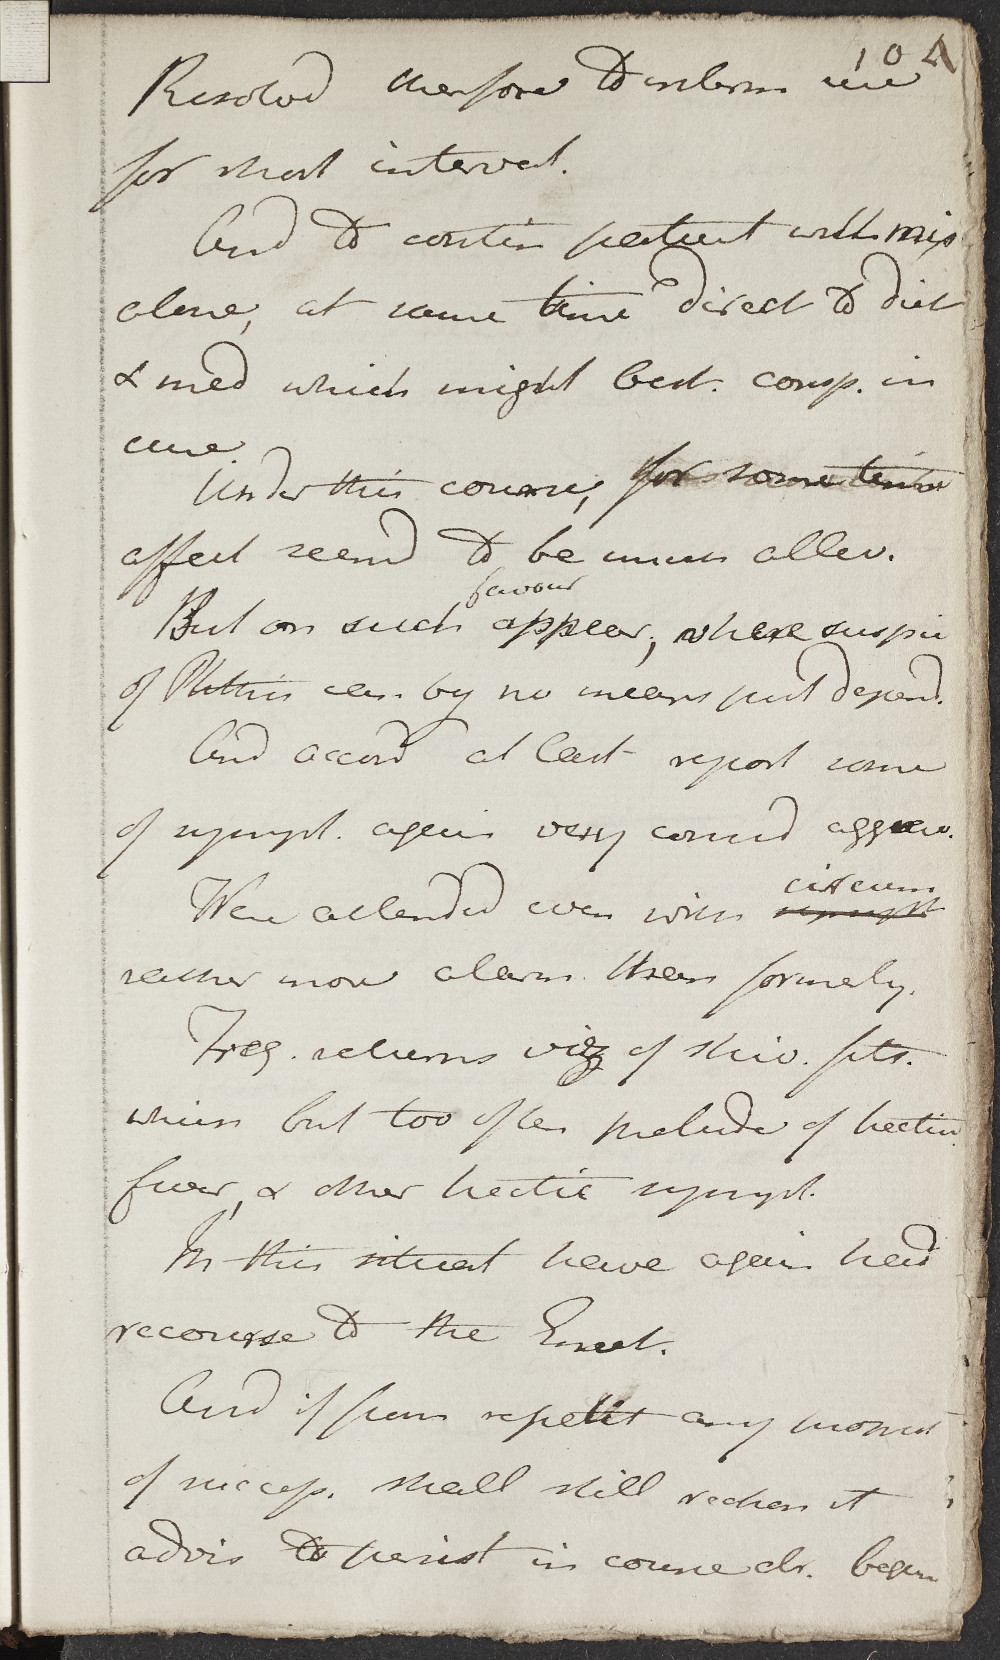 104
Resolvd therefore to interm use
for short interval.
And to contin patient with mix
alone, at same time direct to diet
& med which might best. consp. in
cure.
Under this course, for some time
affect seemd to be much allev.
favour
But on such appear, where suspic
of Phthis can. by no means put depend.
And accord at last report some
of sympt. again very consid aggrav.
circum
Were attended even with sympt
rather more alarm. than formerly.
Freq. returns viz of shiv. fits.
which but too often prelude of hectic
fever, & other hectic sympt.
In this situat have again had
recourse to the Emet.
And if from repetit any prospect
of success. shall still reckon it
advis to persist in course alr. begun